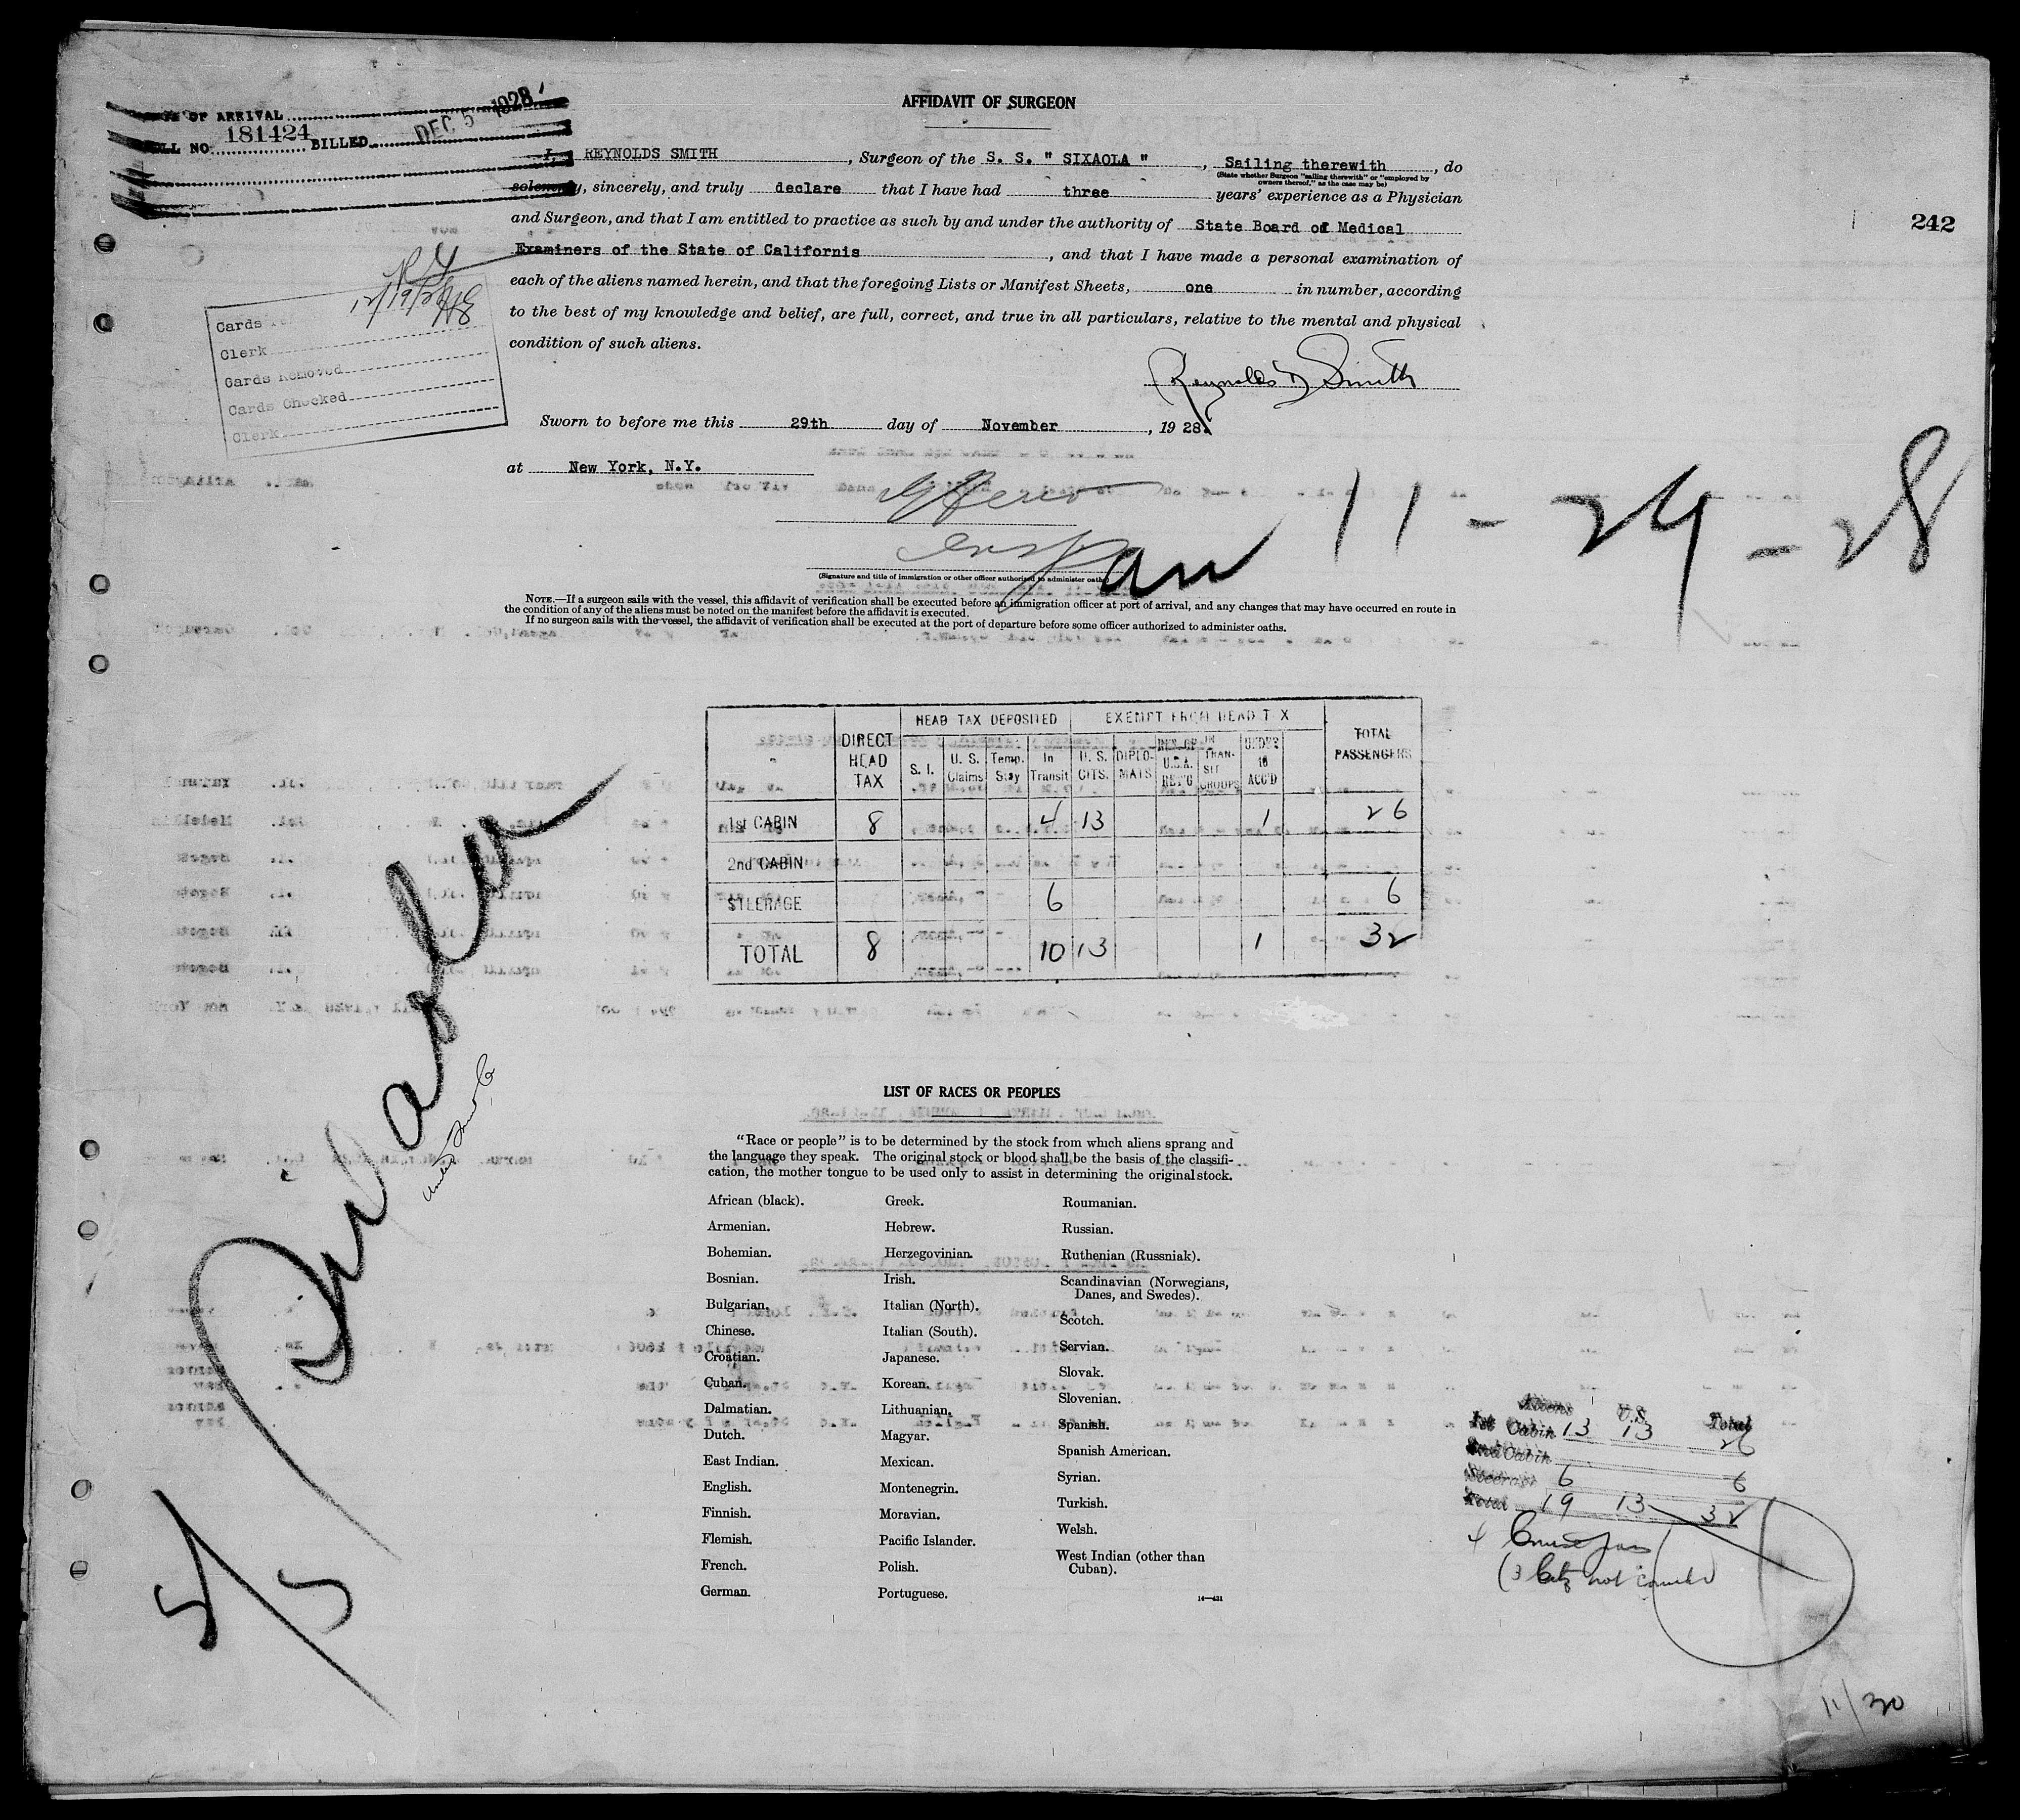 OF ARRIVAL
BILL NO. 181424 BILLED DEC 5 1928
242
AFFIDAVIT OF SURGEON
I, REYNOLDS SMITH, Surgeon of the S. S. " SIXAOLA ", Sailing therewith, do
(State whether Surgeon "sailing therewith" or "employed by owners thereof," as the case may be)
solemnly, sincerely, and truly declare that I have had three years' experience as a Physician
and Surgeon, and that I am entitled to practice as such by and under the authority of State Board of Medical
Examiners of the State of Californis, and that I have made a personal examination of
each of the aliens named herein, and that the foregoing Lists or Manifest Sheets, one in number, according
to the best of my knowledge and belief, are full, correct, and true in all particulars, relative to the mental and physical
condition of such aliens.
Cards
Clerk
Cards Removed
Cards Checked
Clerk
Reynolds D Smith
Sworn to before me this 29th day of November, 1928.
at New York, N.Y.
11-29-28
(Signature and title of immigration or other officer authorized to administer oaths)
NOTE.—If a surgeon sails with the vessel, this affidavit of verification shall be executed before an immigration officer at port of arrival, and any changes that may have occurred en route in
the condition of any of the aliens must be noted on the manifest before the affidavit is executed.
If no surgeon sails with the vessel, the affidavit of verification shall be executed at the port of departure before some officer authorized to administer oaths.
DIRECT HEAD TAX
HEAD TAX DEPOSITED
EXEMPT FROM HEAD T X
TOTAL PASSENGERS
S. I. U. S. Claims Temp. Stay In Transit U. S. CITS. DIPLO-MATS RES. OF U.S.A. RET'G IN TRAN-SIT GROUPS UNDER 16 ACC'D
1st CABIN 8 4 13 1 26
2nd CABIN
STEERAGE 6 6
TOTAL 8 10 13 1 32
Sixaola
LIST OF RACES OR PEOPLES
"Race or people" is to be determined by the stock from which aliens sprang and
the language they speak. The original stock or blood shall be the basis of the classifi-
cation, the mother tongue to be used only to assist in determining the original stock.
African (black). Greek. Roumanian.
Armenian. Hebrew. Russian.
Bohemian. Herzegovinian. Ruthenian (Russniak).
Bosnian. Irish. Scandinavian (Norwegians,
Danes, and Swedes).
Bulgarian. Italian (North). Scotch.
Chinese. Italian (South). Servian.
Croatian. Japanese. Slovak.
Cuban. Korean. Slovenian.
Dalmatian. Lithuanian. Spanish.
Dutch. Magyar. Spanish American.
East Indian. Mexican. Syrian.
English. Montenegrin. Turkish.
Finnish. Moravian. Welsh.
Flemish. Pacific Islander. West Indian (other than
Cuban).
French. Polish.
German. Portuguese.
14—431
Aliens U.S. Total
1st Cabin 13 13 26
2nd Cabin
Steerage 6 6
Total 19 13 32
4 Cruise pass
(3 Citz not counted
5/5
11/30